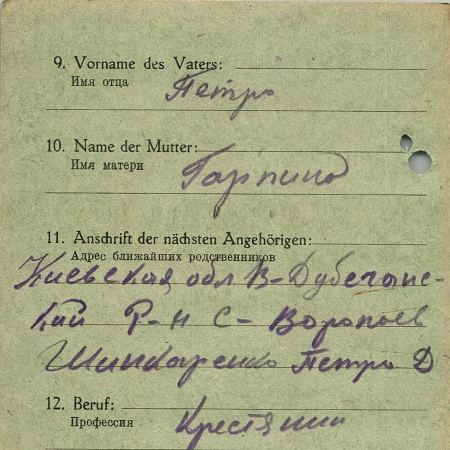 9. Vorname des Vaters:
Имя отца
Петро
10. Name der Mutter:
Имя матери
Гарпина
11. Anschrift der nächsten Angehörigen:
Адрес ближайших родственников
Киевская обл В-Дубечане-
кий Р-н С- Воропаев
Шинкаренко Петро Д
12. Beruf:
Профессия
Крестянин